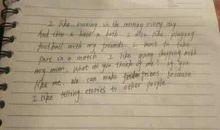 I like running in the morning every day.
And then a have a bath. I also like playing
football with my friends. I want to take
part in a match. I like going shopping with
my mum. What do you think of me? If you
like me. We can make friends because
I like telling stories to other people.